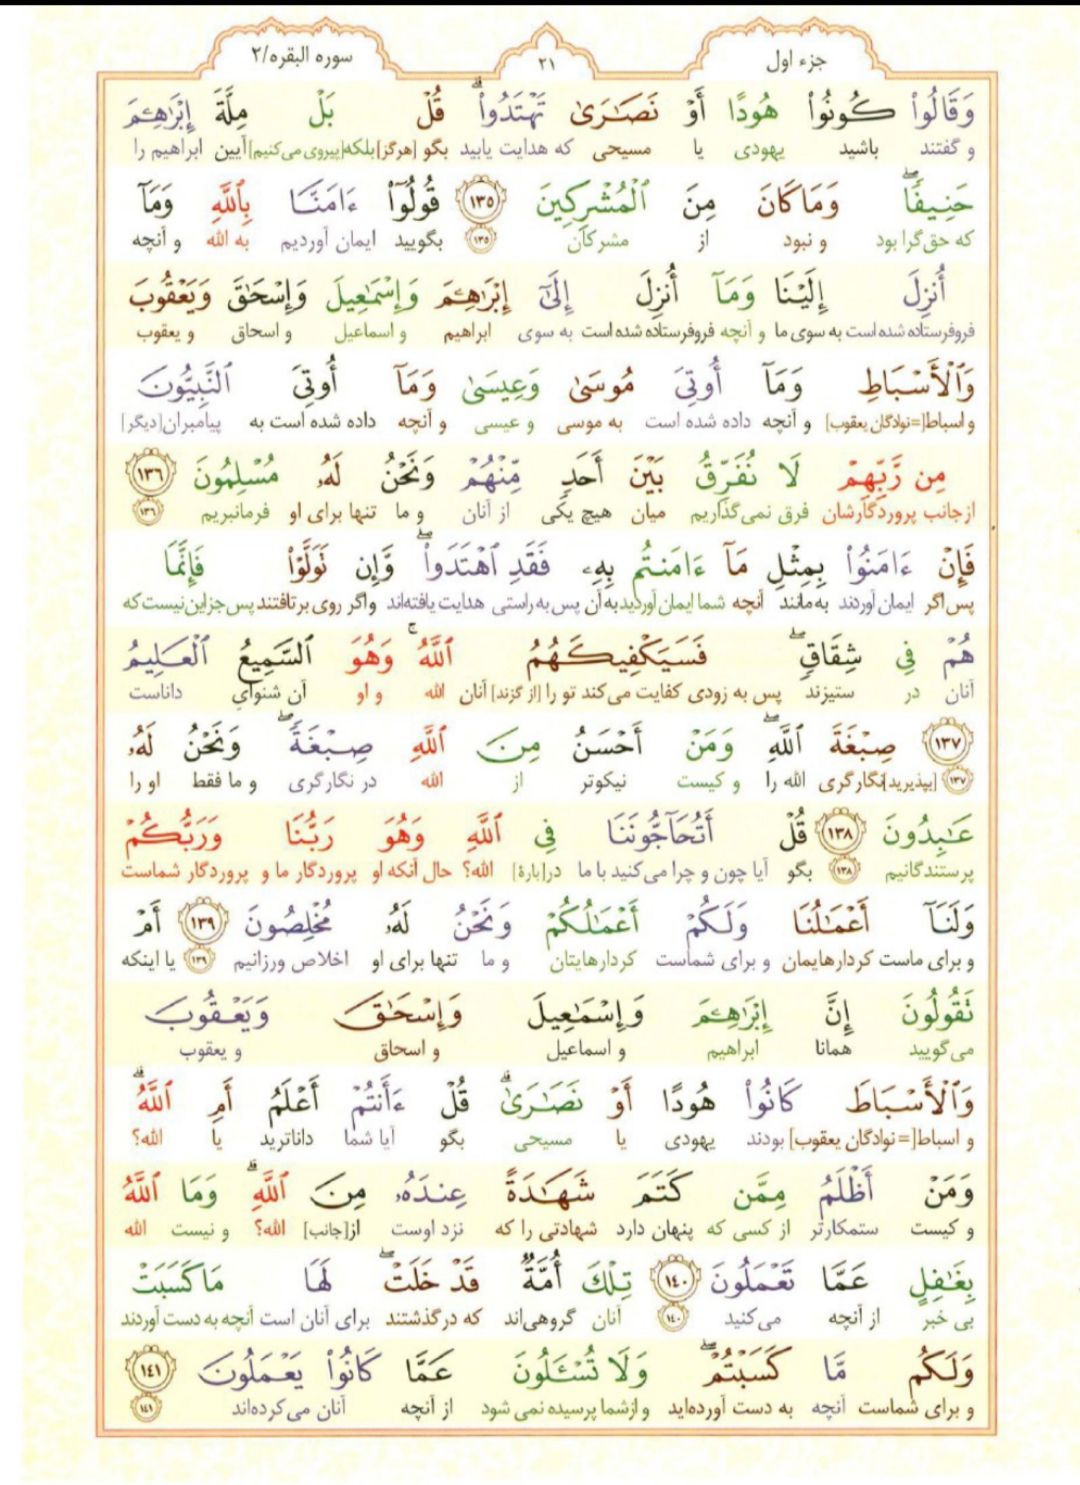 جزء اول
٢١
سوره البقره/٢
وَقَالُوا۟ كُونُوا۟ هُودًا أَوْ نَصَـٰرَىٰ تَهْتَدُوا۟ ۗ قُلْ بَلْ مِلَّةَ إِبْرَٰهِـۧمَ
و گفتند باشید یهودی یا مسیحی که هدایت یابید بگو [هرگز] بلکه [پیروی می‌کنیم] آیین ابراهیم را
حَنِيفًا ۖ وَمَا كَانَ مِنَ ٱلْمُشْرِكِينَ ١٣٥ قُولُوٓا۟ ءَامَنَّا بِٱللَّهِ وَمَآ
که حق‌گرا بود و نبود از مشرکان ١٣٥ بگویید ایمان آوردیم به الله و آنچه
أُنزِلَ إِلَيْنَا وَمَآ أُنزِلَ إِلَىٰٓ إِبْرَٰهِـۧمَ وَإِسْمَـٰعِيلَ وَإِسْحَـٰقَ وَيَعْقُوبَ
فروفرستاده شده است به سوی ما و آنچه فروفرستاده شده است به سوی ابراهیم و اسماعیل و اسحاق و یعقوب
وَٱلْأَسْبَاطِ وَمَآ أُوتِىَ مُوسَىٰ وَعِيسَىٰ وَمَآ أُوتِىَ ٱلنَّبِيُّونَ
و اسباط[=نوادگان یعقوب] و آنچه داده شده است به موسی و عیسی و آنچه داده شده است به پیامبران[دیگر]
مِن رَّبِّهِمْ لَا نُفَرِّقُ بَيْنَ أَحَدٍ مِّنْهُمْ وَنَحْنُ لَهُۥ مُسْلِمُونَ ١٣٦
ازجانب پروردگارشان فرق نمی‌گذاریم میان هیچ یکی از آنان و ما تنها برای او فرمانبریم ١٣٦
فَإِنْ ءَامَنُوا۟ بِمِثْلِ مَآ ءَامَنتُم بِهِۦ فَقَدِ ٱهْتَدَوا۟ ۖ وَّإِن تَوَلَّوْا۟ فَإِنَّمَا
پس اگر ایمان آوردند به مانند آنچه شما ایمان آوردید به آن پس به راستی هدایت یافته‌اند و اگر روی برتافتند پس جز این نیست که
هُمْ فِى شِقَاقٍ ۖ فَسَيَكْفِيكَهُمُ ٱللَّهُ ۚ وَهُوَ ٱلسَّمِيعُ ٱلْعَلِيمُ
آنان در ستیزند پس به زودی کفایت می‌کند تو را [از گزند] آنان الله و او آن شنوای داناست
١٣٧ صِبْغَةَ ٱللَّهِ ۖ وَمَنْ أَحْسَنُ مِنَ ٱللَّهِ صِبْغَةً ۖ وَنَحْنُ لَهُۥ
١٣٧ [بپذیرید] نگارگری الله را و کیست نیکوتر از الله در نگارگری و ما فقط او را
عَـٰبِدُونَ ١٣٨ قُلْ أَتُحَآجُّونَنَا فِى ٱللَّهِ وَهُوَ رَبُّنَا وَرَبُّكُمْ
پرستندگانیم ١٣٨ بگو آیا چون و چرا می‌کنید با ما در[بارهٔ] الله؟ حال آنکه او پروردگار ما و پروردگار شماست
وَلَنَآ أَعْمَـٰلُنَا وَلَكُمْ أَعْمَـٰلُكُمْ وَنَحْنُ لَهُۥ مُخْلِصُونَ ١٣٩ أَمْ
و برای ماست کردارهایمان و برای شماست کردارهایتان و ما تنها برای او اخلاص ورزانیم ١٣٩ یا اینکه
تَقُولُونَ إِنَّ إِبْرَٰهِـۧمَ وَإِسْمَـٰعِيلَ وَإِسْحَـٰقَ وَيَعْقُوبَ
می‌گویید همانا ابراهیم و اسماعیل و اسحاق و یعقوب
وَٱلْأَسْبَاطَ كَانُوا۟ هُودًا أَوْ نَصَـٰرَىٰ ۗ قُلْ ءَأَنتُمْ أَعْلَمُ أَمِ ٱللَّهُ ۗ
و اسباط[=نوادگان یعقوب] بودند یهودی یا مسیحی بگو آیا شما داناترید یا الله؟
وَمَنْ أَظْلَمُ مِمَّن كَتَمَ شَهَـٰدَةً عِندَهُۥ مِنَ ٱللَّهِ ۗ وَمَا ٱللَّهُ
و کیست ستمکارتر از کسی که پنهان دارد شهادتی را که نزد اوست از[جانب] الله؟ و نیست الله
بِغَـٰفِلٍ عَمَّا تَعْمَلُونَ ١٤٠ تِلْكَ أُمَّةٌ قَدْ خَلَتْ ۖ لَهَا مَا كَسَبَتْ
بی خبر از آنچه می‌کنید ١٤٠ آنان گروهی‌اند که درگذشتند برای آنان است آنچه به دست آوردند
وَلَكُم مَّا كَسَبْتُمْ ۖ وَلَا تُسْـَٔلُونَ عَمَّا كَانُوا۟ يَعْمَلُونَ ١٤١
و برای شماست آنچه به دست آورده‌اید و ازشما پرسیده نمی شود از آنچه آنان می‌کرده‌اند ١٤١